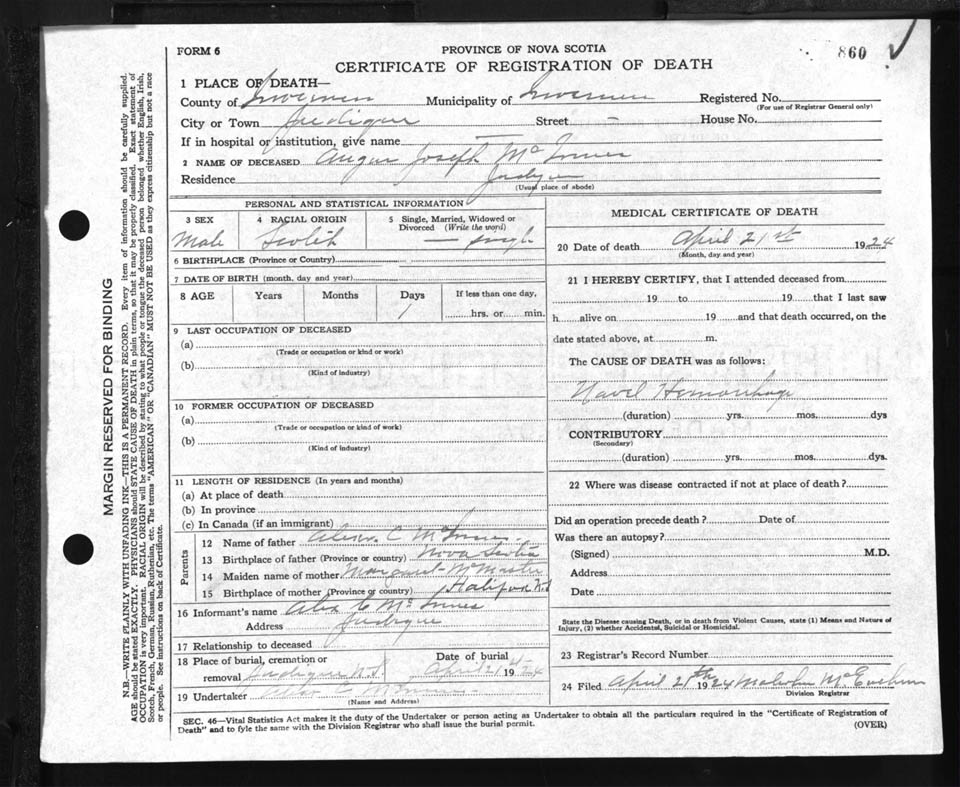 860
FORM 6
PROVINCE OF NOVA SCOTIA
CERTIFICATE OF REGISTRATION OF DEATH
1 PLACE OF DEATH—
County of Inverness Municipality of Inverness Registered No.
(For use of Registrar General only)
City or Town Judique Street - House No.
If in hospital or institution, give name —
2 NAME OF DECEASED Angus Joseph McInnes
Residence Judique
(Usual place of abode)
PERSONAL AND STATISTICAL INFORMATION
3 SEX 4 RACIAL ORIGIN 5 Single, Married, Widowed or Divorced (Write the word)
Male Scotch — single
6 BIRTHPLACE (Province or Country)
7 DATE OF BIRTH (month, day and year)
8 AGE Years Months Days If less than one day,
7 hrs. or min.
9 LAST OCCUPATION OF DECEASED
(a)
(Trade or occupation or kind or work)
(b)
(Kind of industry)
10 FORMER OCCUPATION OF DECEASED
(a)
(Trade or occupation or kind of work)
(b)
(Kind of industry)
11 LENGTH OF RESIDENCE (In years and months)
(a) At place of death
(b) In province
(c) In Canada (if an immigrant)
Parents
12 Name of father Alex. C McInnes
13 Birthplace of father (Province or country) Nova Scotia
14 Maiden name of mother Margaret McMaster
15 Birthplace of mother (Province or country) Halifax N.S
16 Informant's name Alex C McInnes
Address Judique
17 Relationship to deceased
18 Place of burial, cremation or removal Judique N.S. Date of burial April 21 1924
19 Undertaker Alex C McInnes
(Name and Address)
MEDICAL CERTIFICATE OF DEATH
20 Date of death April 21st 1924
(Month, day and year)
21 I HEREBY CERTIFY, that I attended deceased from
19 to 19 that I last saw
h alive on 19 and that death occurred, on the
date stated above, at m.
The CAUSE OF DEATH was as follows:
Navil Hemorrhage
(duration) yrs. mos. dys
CONTRIBUTORY
(Secondary)
(duration) yrs. mos. dys.
22 Where was disease contracted if not at place of death?
Did an operation precede death? Date of
Was there an autopsy?
(Signed) M.D.
Address
Date
State the Disease causing Death, or in death from Violent Causes, state (1) Means and Nature of
Injury, (2) whether Accidental, Suicidal or Homicidal.
23 Registrar's Record Number
24 Filed April 21th 1924 Malcolm McEachern
Division Registrar
SEC. 46—Vital Statistics Act makes it the duty of the Undertaker or person acting as Undertaker to obtain all the particulars required in the "Certificate of Registration of
Death" and to fyle the same with the Division Registrar who shall issue the burial permit.
(OVER)
MARGIN RESERVED FOR BINDING
N.B.—WRITE PLAINLY WITH UNFADING INK—THIS IS A PERMANENT RECORD. Every item of information should be carefully supplied.
AGE should be stated EXACTLY. PHYSICIANS should STATE CAUSE OF DEATH in plain terms, so that it may be properly classified. Exact statement of
OCCUPATION is very important. RACIAL ORIGIN will be described by stating to what people or tongue the deceased person belonged whether English, Irish,
Scotch, French, German, Russian, Ruthenian, etc. The terms "AMERICAN" OR "CANADIAN" MUST NOT BE USED as they express citizenship but not a race
or people. See instructions on back of Certificate.